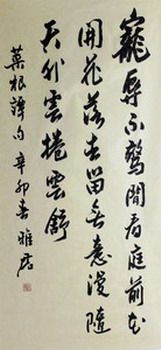 寵辱不驚閒看庭前花
開花落去留無意漫隨
天外雲捲雲舒
菜根譚句 辛卯春 雅君